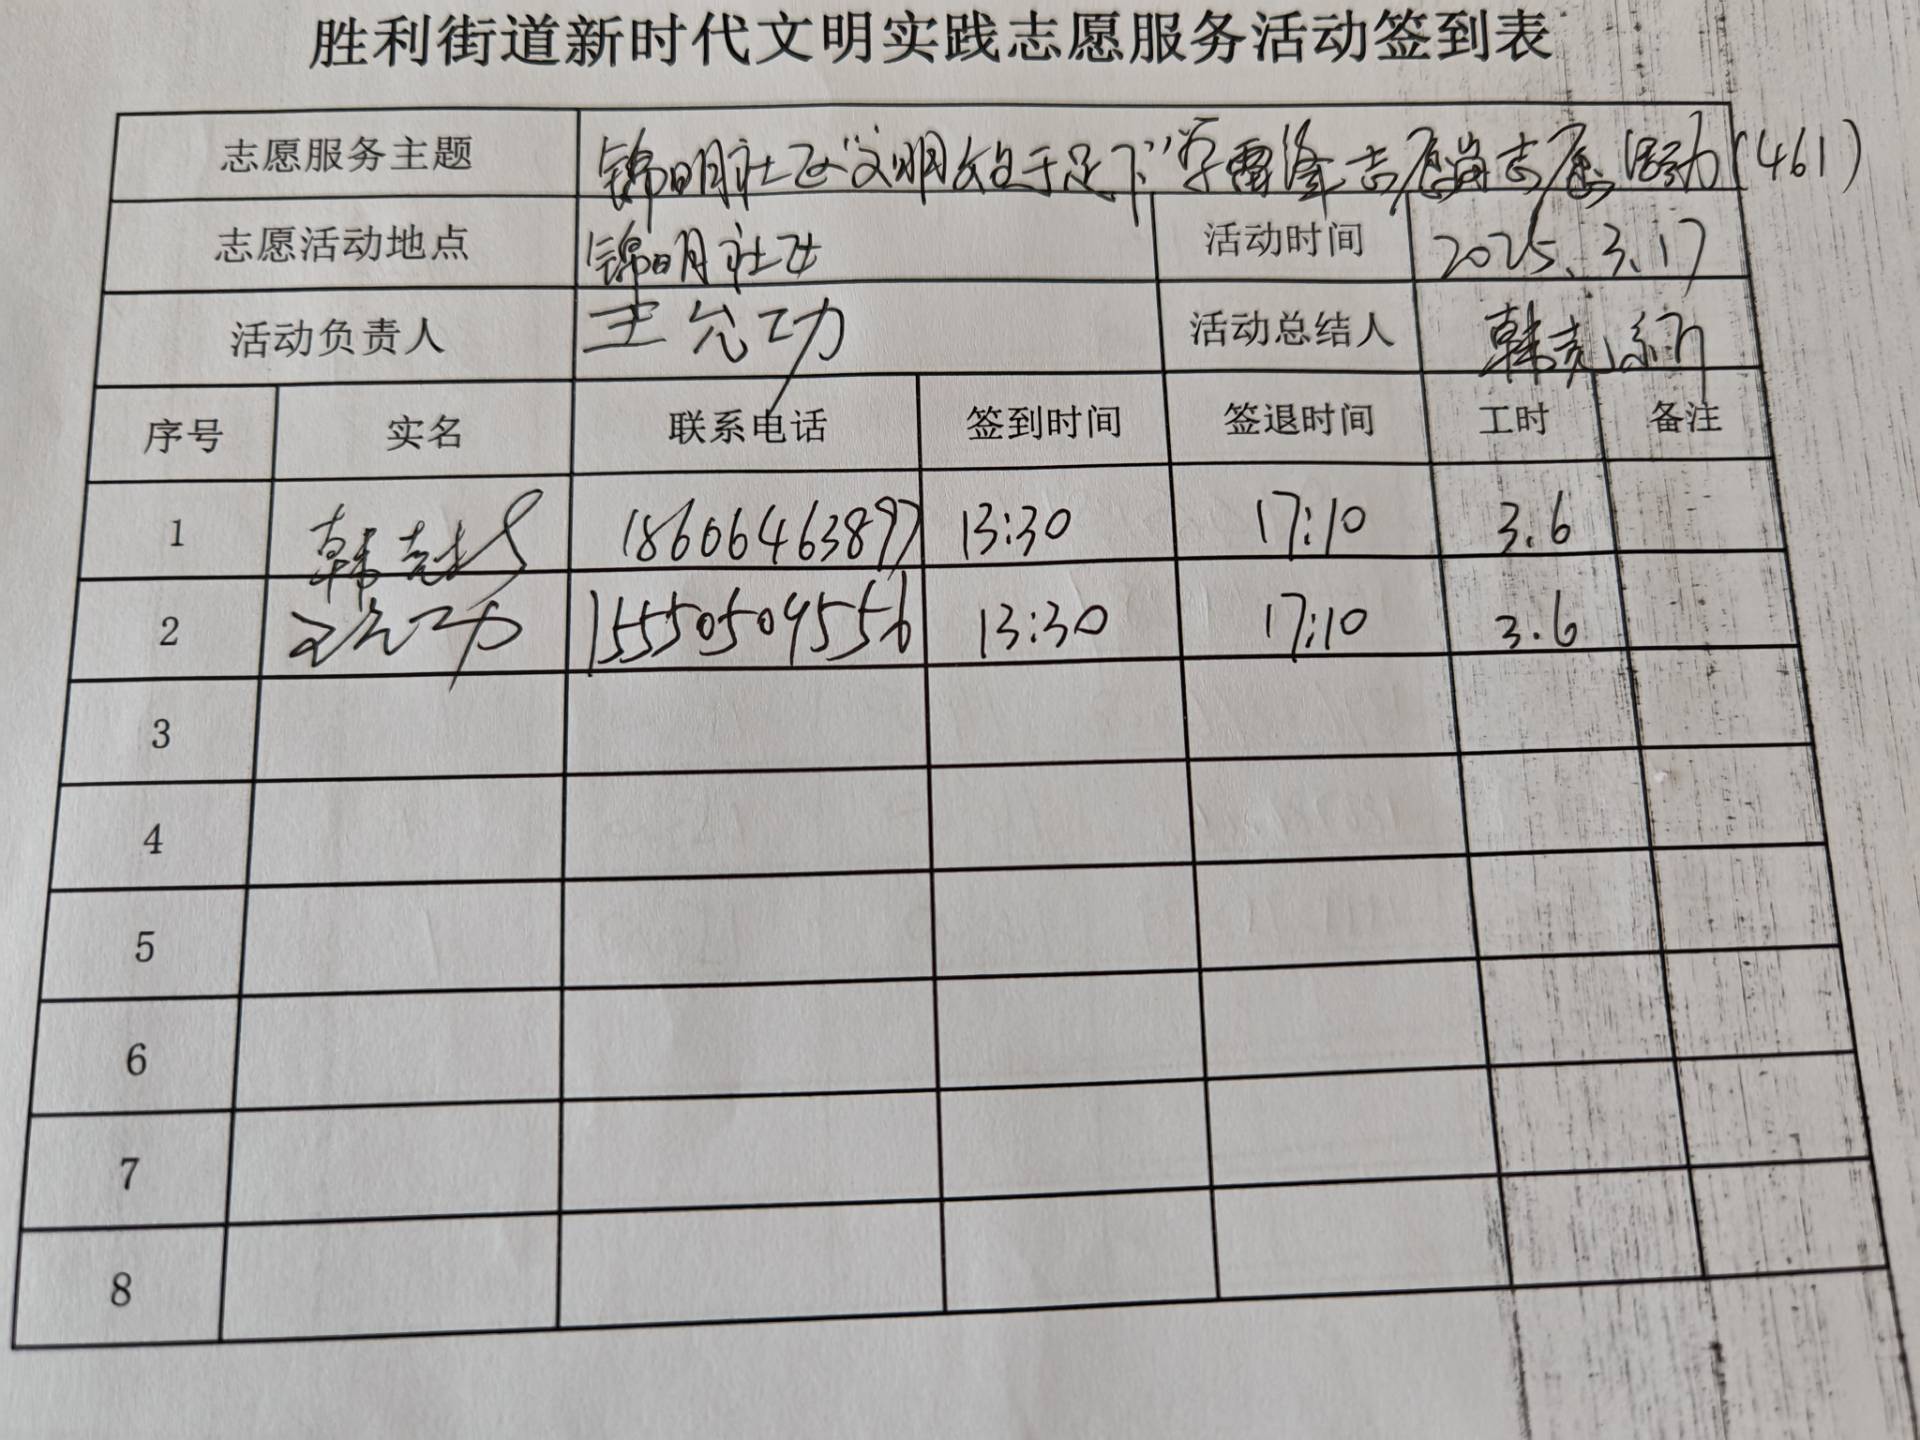 胜利街道新时代文明实践志愿服务活动签到表
志愿服务主题 锦明社区“文明始于足下”学雷锋志愿岗志愿活动(461)
志愿活动地点 锦明社区 活动时间 2025.3.17
活动负责人 王允功 活动总结人 韩
序号 实名 联系电话 签到时间 签退时间 工时 备注
1 韩 18606463897 13:30 17:10 3.6
2 王允功 15550509556 13:30 17:10 3.6
3
4
5
6
7
8